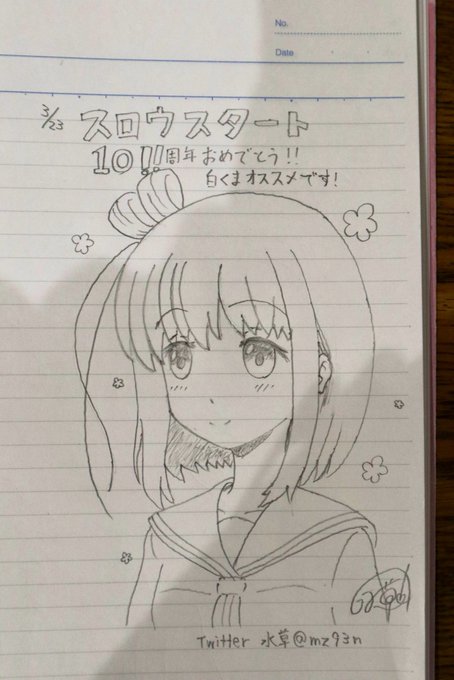 No.
Date
3/23 スロウスタート
10!!周年おめでとう!!
白くまオススメです!
Twitter 水草@mz93n